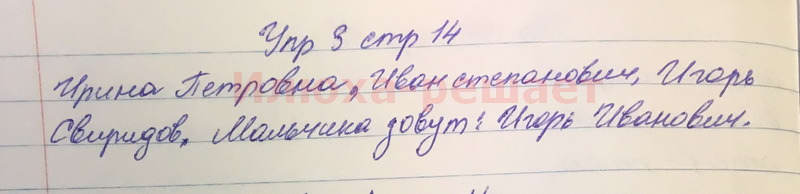 Упр 3 стр 14
Ирина Петровна, Иван степанович, Игорь
Свиридов. Мальчика зовут: Игорь Иванович.
Илюха решает